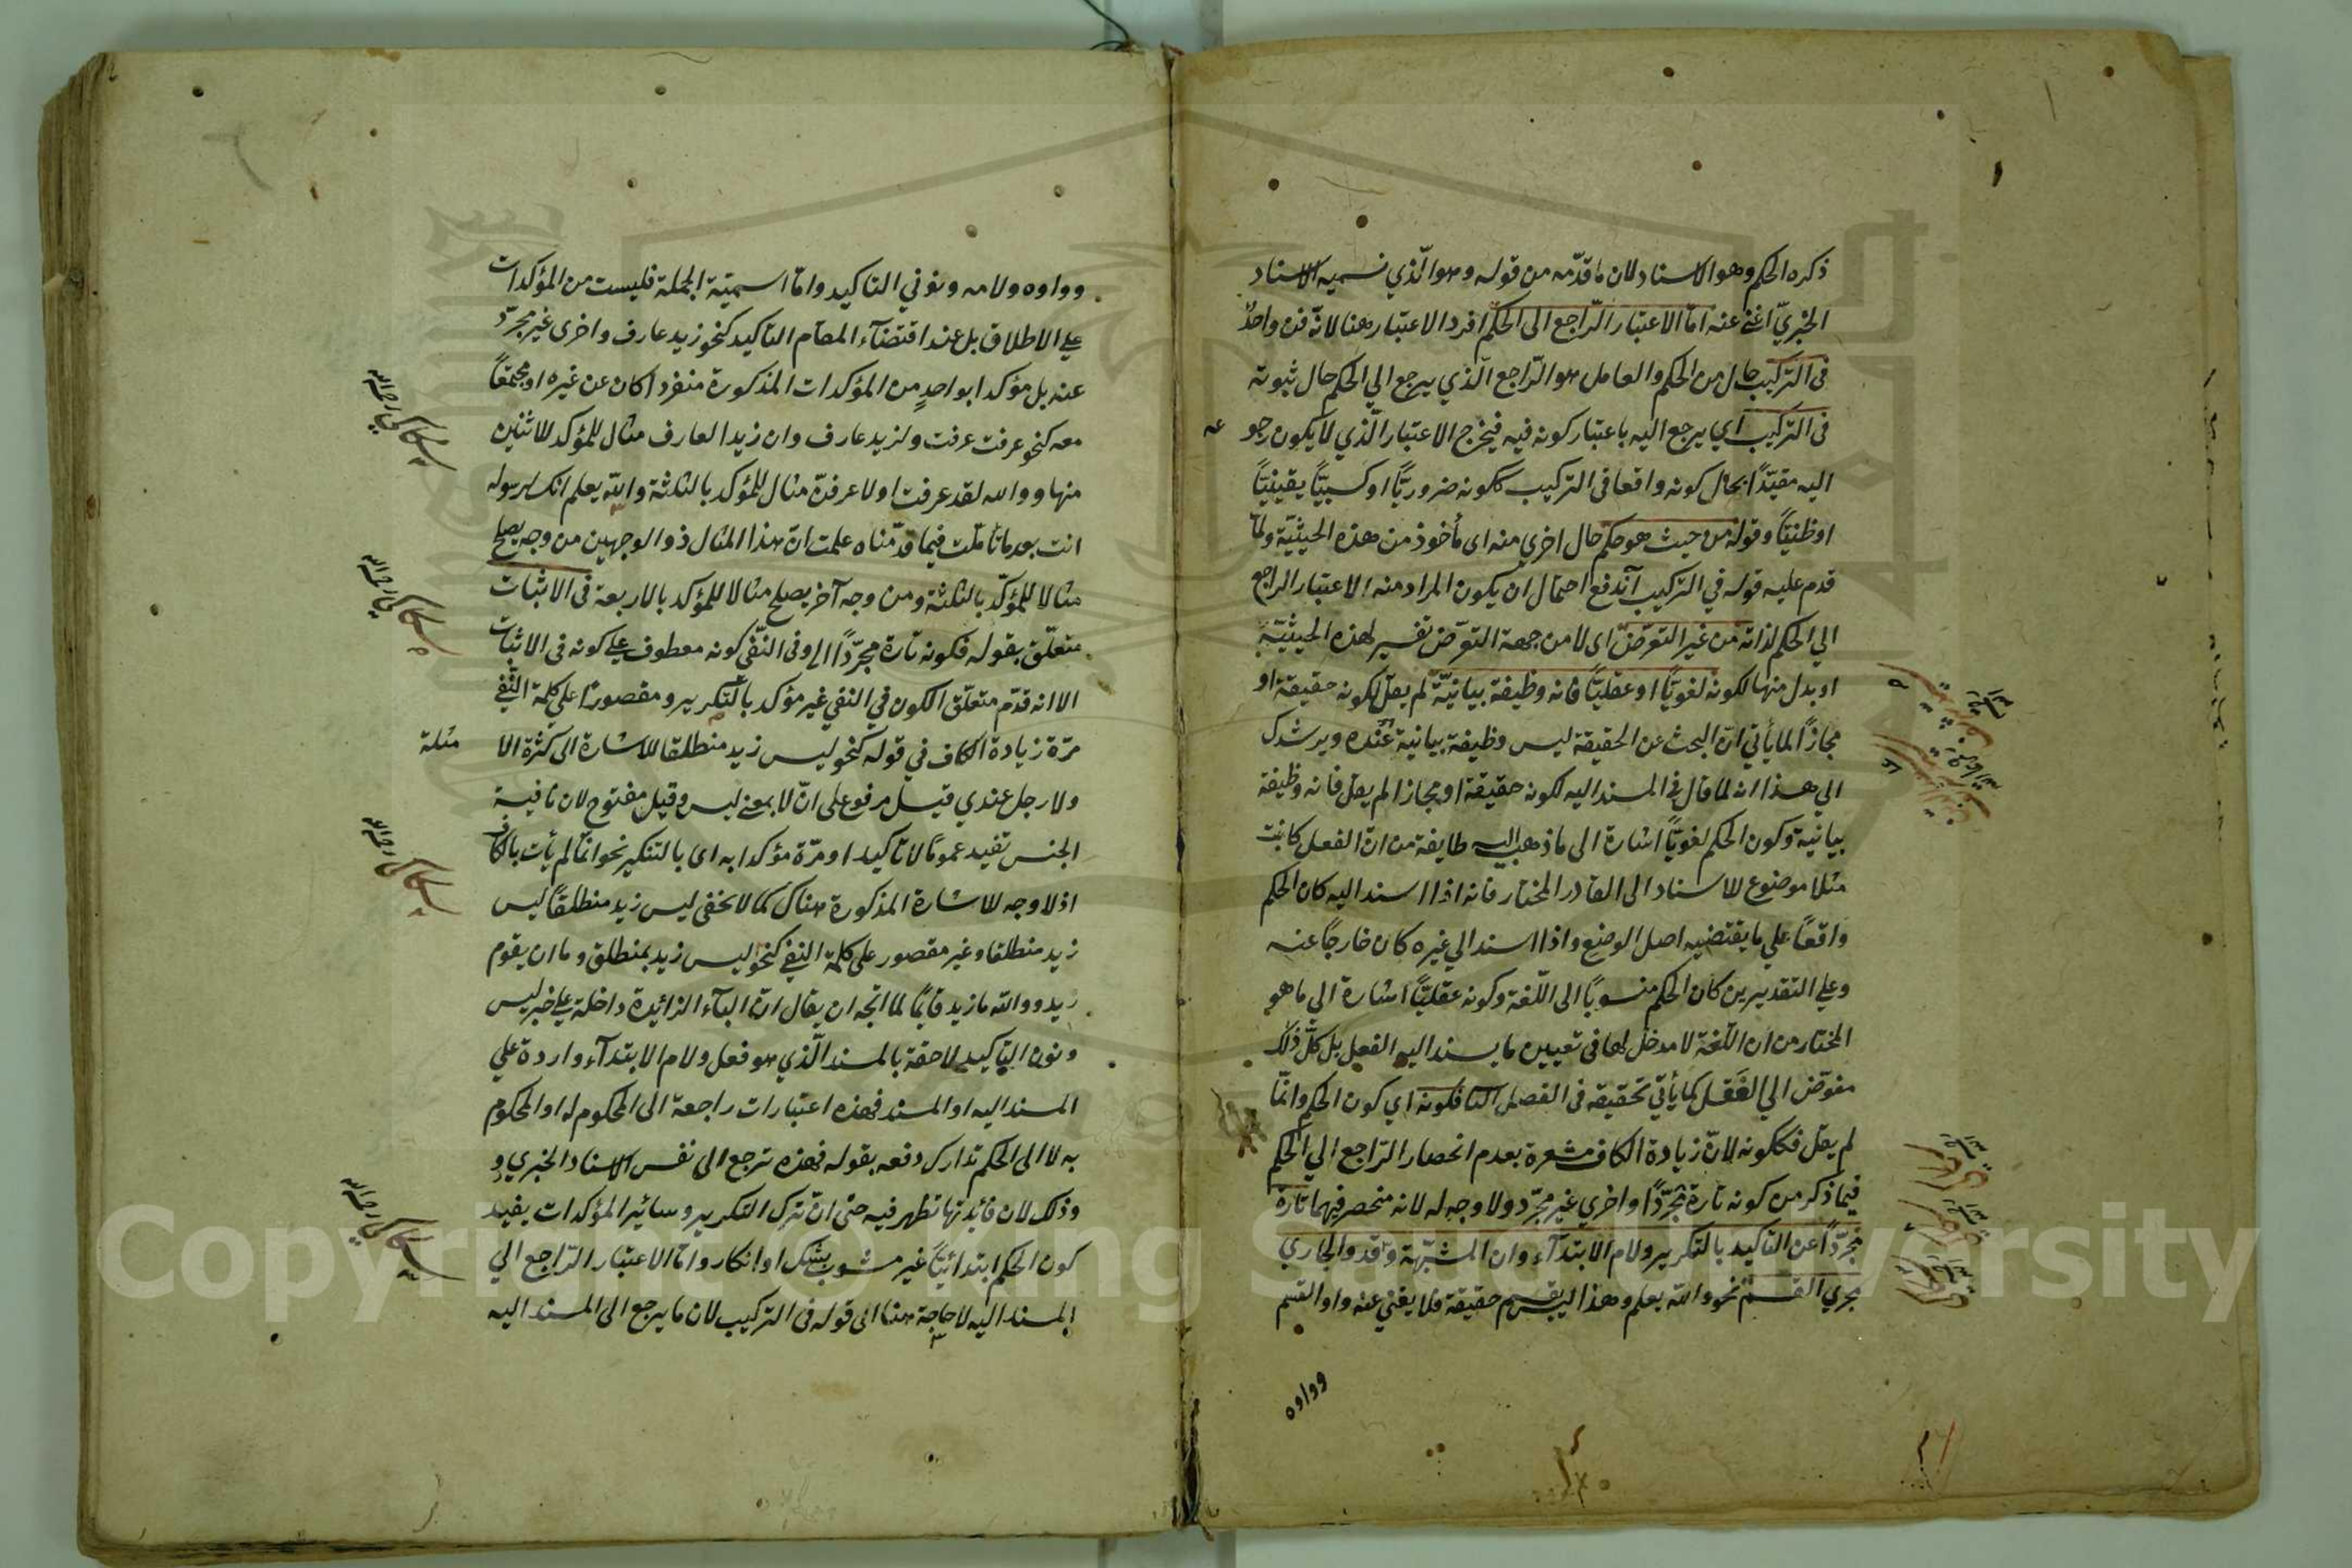 ذكره الحكم وهو الاسناد لان ما قدّمه من قوله وهو الّذي نسميه الاسناد
الخبريّ اغنى عنه امّا الاعتبار الرّاجع الى الحكم افرد الاعتبار هنا لانّه فن واحد
فى التركيب حال من الحكم والعامل هو الرّاجع الّذي يرجع الي الحكم حال ثبوته
فى التركيب اي يرجع اليه باعتبار كونه فيه فيخرج الاعتبار الّذي لا يكون رجو عه
اليه مقيّدًا بحال كونه واقعا فى التركيب ككونه ضروريًّا او كسبيًّا يقينيًّا
او ظنيًّا وقوله من حيث هو حكم حال اخري منه اى مأخوذ من هذه الحيثيّة ولمّا
قدم عليه قوله في التركيب اندفع احتمال ان يكون المراد منه الاعتبار الراجع
الي الحكم لذاته من غير التعرّض اى لا من جهة التعرّض تفسير لهذه الحيثيّة
او بدل منها لكونه لغويًّا او عقليًّا فانه وظيفة بيانيّة لم يقل لكونه حقيقة او
مجازًا لما يأتي انّ البحث عن الحقيقة ليس وظيفة بيانية عنده ويرشدك
الي هذا انه لما قال في المسند اليه لكونه حقيقة او مجازا لم يقل فانه وظيفة
بيانية وكون الحكم لغويًّا اشارة الى ما ذهب اليه طايفة من انّ الفعل كانبت
مثلا موضوع للاسناد الى القادر المختار فانه اذا اسند اليه كان الحكم
واقعًا علي ما يقتضيه اصل الوضع واذا اسند الي غيره كان خارجًا عنه
وعلي التقديرين كان الحكم منسوبًا الى اللّغة وكونه عقليًّا اشارة الي ما هو
المختار من ان اللّغة لا مدخل لها فى تعيين ما يسند اليه الفعل بل كلّ ذلك
مفوّض الي العقل كما يأتي تحقيقه فى الفصل فكونه اي كون الحكم وانّما
لم يقل فككونه لانّ زيادة الكاف مشعرة بعدم انحصار الرّاجع الي الحكم
فيما ذكر من كونه تارة مجرّدًا واخري غير مجرّد ولا وجه له لانه منحصر فيهما تارة
مجرّدًا عن التاكيد بالتكرير ولام الابتدآء وان المشبّهة وقد والجاري
مجري القسم نحو والله يعلم وهذا ليس بقسم حقيقة فلا يغني عنه واو القسم
وواوه
وواوه ولامه ونوني التاكيد وامّا اسميّة الجملة فليست من المؤكدات
علي الاطلاق بل عند اقتضآء المقام التاكيد كنحو زيد عارف واخرى غير مجرّد
عنه بل مؤكدا بواحدٍ من المؤكدات المذكورة منفردا كان عن غيره او مجتمعًا
معه كنحو عرفت عرفت ولزيد عارف وان زيدا لعارف مثال للمؤكد للاثنين
منها ووالله لقد عرفت او لاعرفنّ مثال للمؤكد بالثلثة والله يعلم انك لرسوله
انت بعد ما تأمّلت فيما قدّمناه علمت انّ هذا المثال ذو الوجهين من وجه يصلح
مثالا للمؤكّد بالثلثة ومن وجه آخر يصلح مثالا للمؤكد بالاربعة فى الاثبات
متعلّق بقوله فكونه تارة مجرّدًا الخ وفى النّفي كونه معطوف علي كونه فى الاثبات
الا انه قدّم متعلّق الكون في النفي غير مؤكد بالتكرير ومقصورًا على كلمة النّفي
مرّة زيادة الكاف في قوله كنحو ليس زيد منطلقا للاشارة الى كثرة الا مثلة
ولا رجل عندي قيل مرفوع على انّ لا بمعنى ليس وقيل مفتوح لان نافية
الجنس تفيد عمومًا لا تاكيدا ومرّة مؤكدا به اى بالتكرير نحو انّما لم يأت بالكاف
اذ لا وجه للاشارة المذكورة هناك كما لا يخفى ليس زيد منطلقًا ليس
زيد منطلقا وغير مقصور على كلمة النفي كنحو ليس زيد بمنطلق وما ان يقوم
زيد ووالله ما زيد قايمًا لما اتّجه ان يقال انّ البآء الزائدة داخلة علي خبر ليس
ونون التاكيد لاحقة بالمسند الّذي هو فعل ولام الابتدآء واردة علي
المسند اليه او المسند فهذه اعتبارات راجعة الى المحكوم له او المحكوم
به لا الى الحكم تدارك دفعه بقوله فهذه ترجع الى نفس الاسناد الخبري و
وذلك لان فائدتها تظهر فيه حتى انّ ترك التكرير وسائر المؤكدات يفيد
كون الحكم ابتدائيًّا غير مشوب بشك او انكار وامّا الاعتبار الرّاجع الي
المسند اليه لا حاجة هنا الى قوله فى التركيب لان ما يرجع الى المسند اليه
سكاكى رحمه الله
سكاكى رحمه الله
سكاكى رحمه الله
سكاكى رحمه الله
Copyright © King Saud University